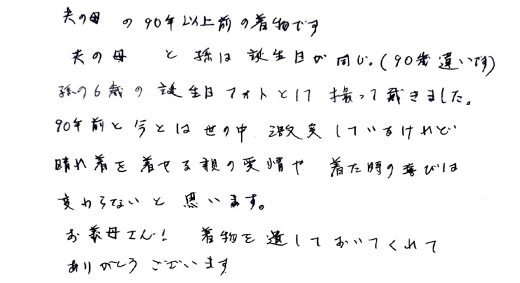 夫の母 の90年以上前の着物です
夫の母 と孫は誕生日が同じ。(90歳違いです)
孫の6歳の誕生日フォトとして撮って戴きました。
90年前と今とは世の中激変しているけれど
晴れ着を着せる親の愛情や 着た時の喜びは
変わらないと思います。
お義母さん! 着物を遺しておいてくれて
ありがとうございます